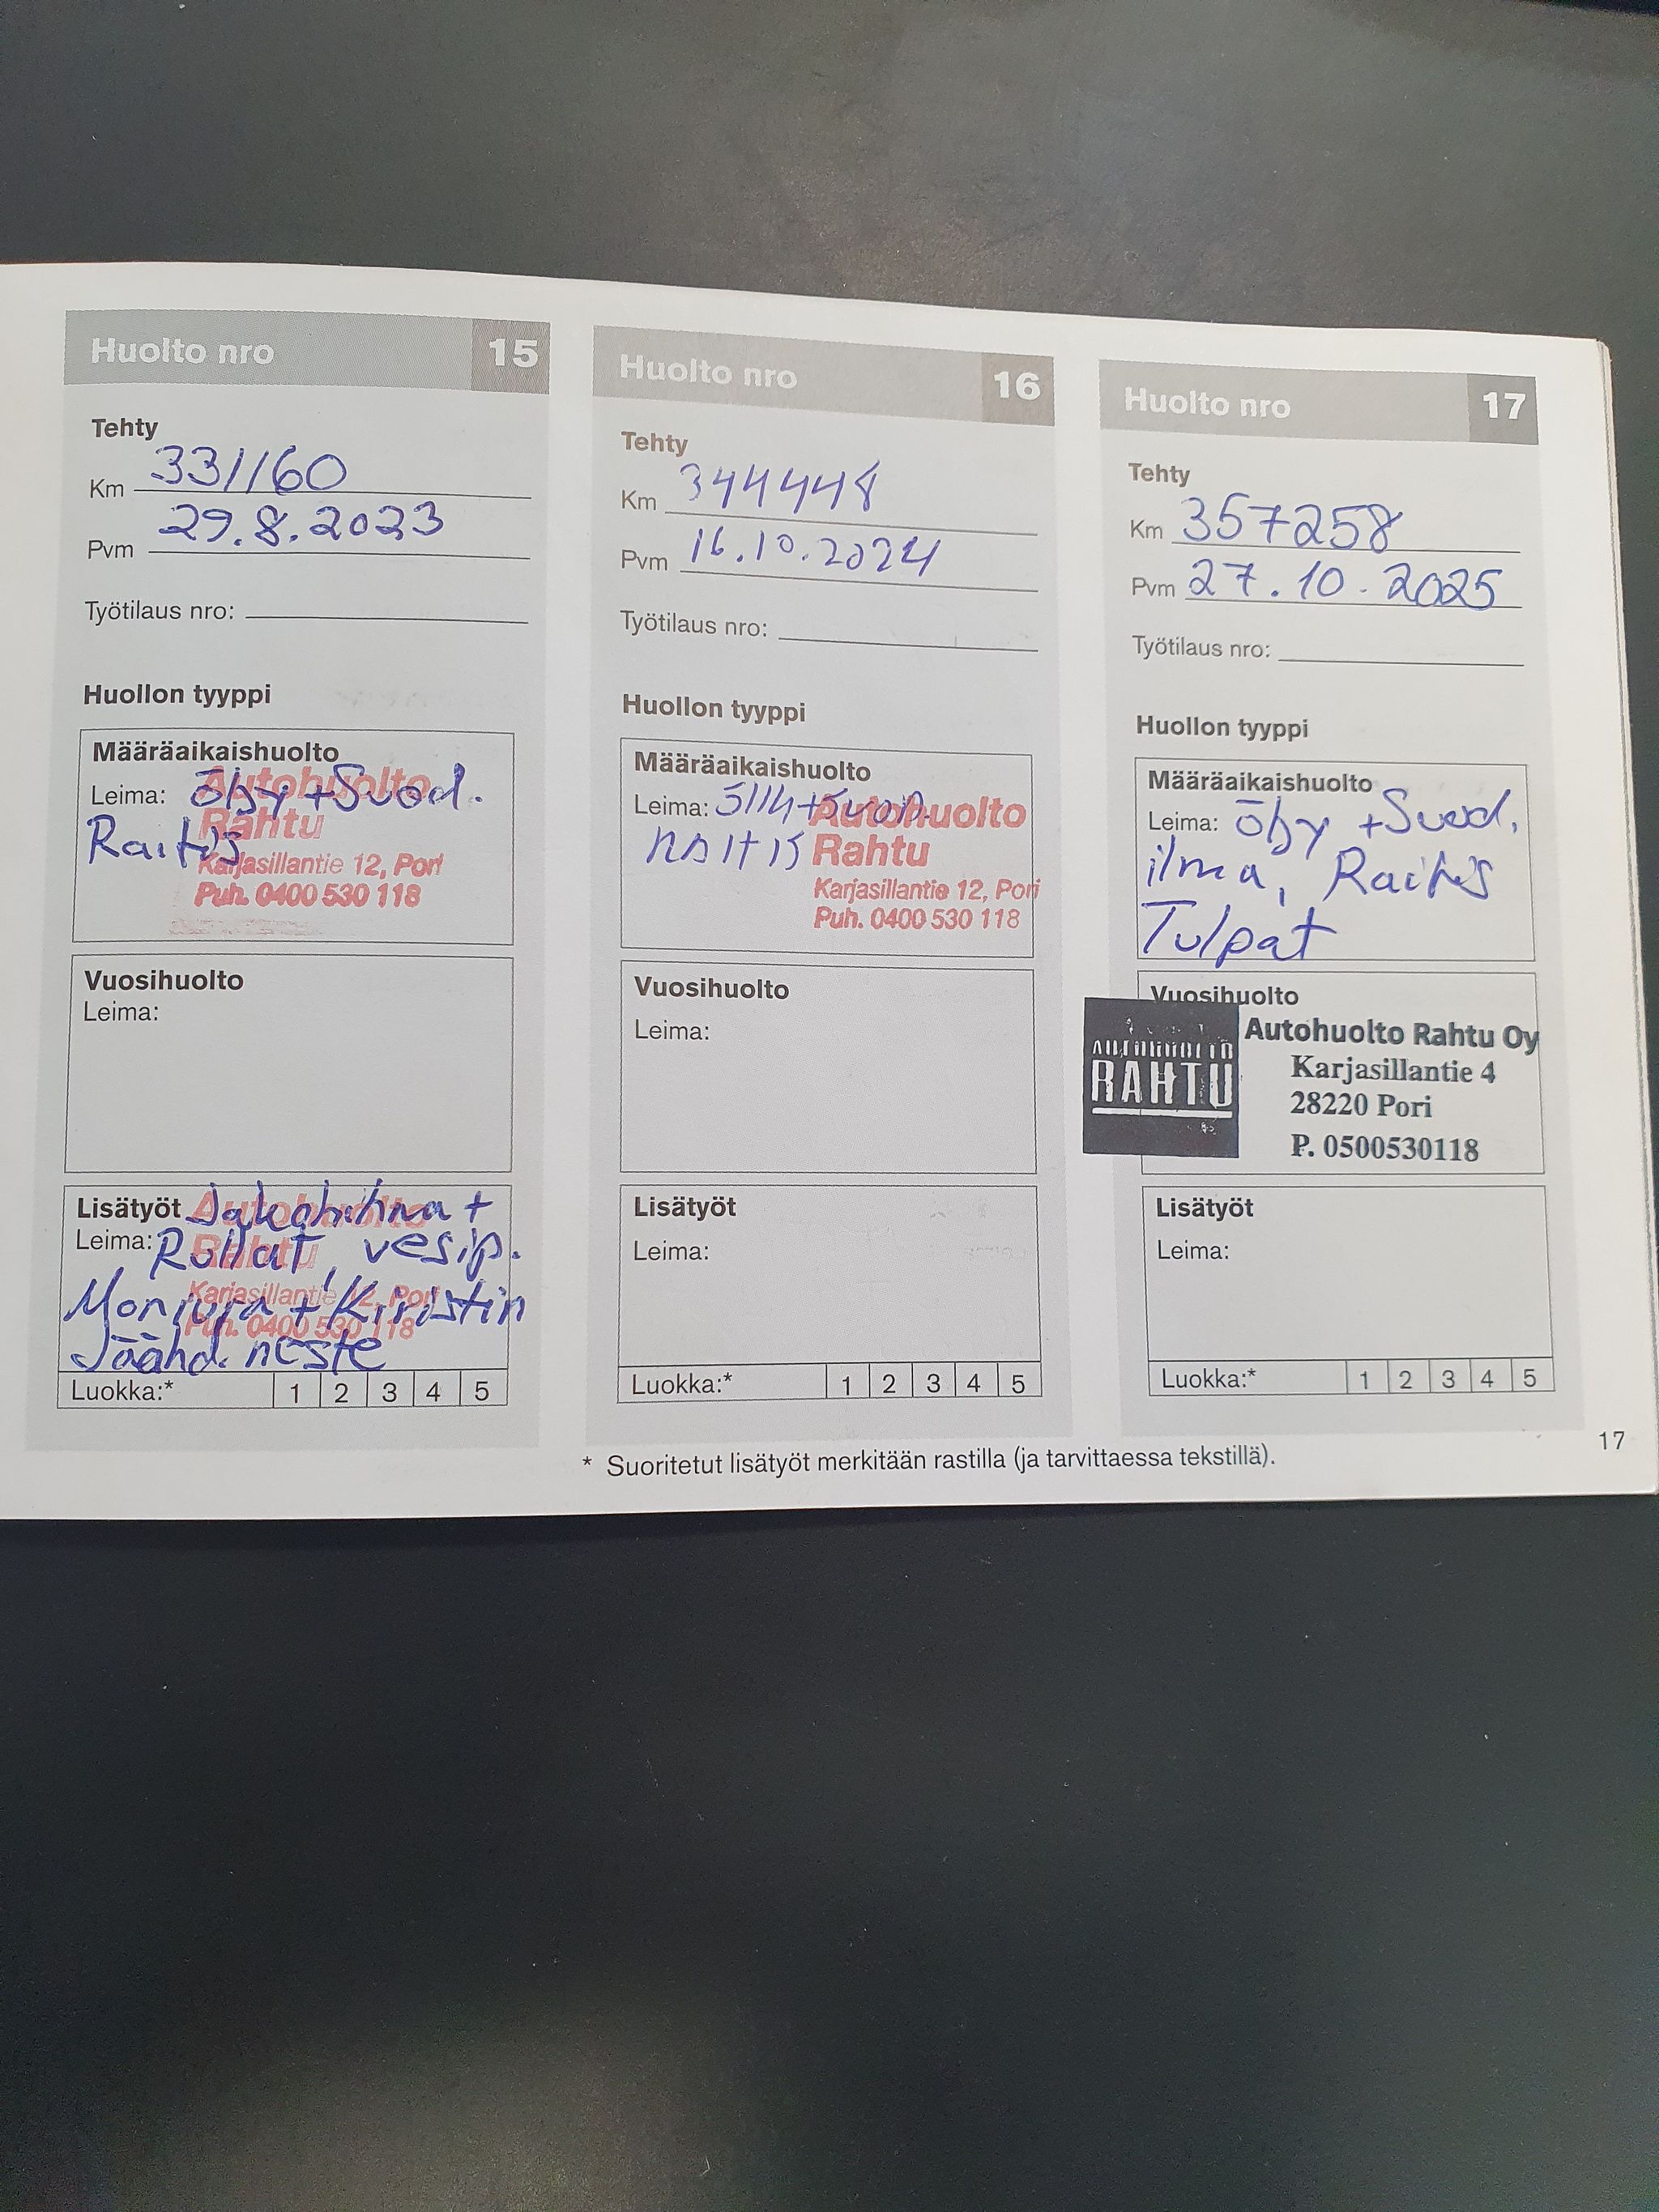 Huolto nro 15
Tehty
Km 331160
Pvm 29.8.2023
Työtilaus nro:
Huollon tyyppi
Määräaikaishuolto
Leima: öljy + Suod.
Raitis
Autohuolto
Rahtu
Karjasillantie 12, Pori
Puh. 0400 530 118
Vuosihuolto
Leima:
Lisätyöt Jakohihna +
Leima: Rullat, vesip.
Moniura + Kiristin
Jäähd. neste
Autohuolto
Rahtu
Karjasillantie 12, Pori
Puh. 0400 530 118
Luokka:* 1 2 3 4 5
Huolto nro 16
Tehty
Km 344448
Pvm 16.10.2024
Työtilaus nro:
Huollon tyyppi
Määräaikaishuolto
Leima:
Autohuolto
Rahtu
Karjasillantie 12, Pori
Puh. 0400 530 118
Vuosihuolto
Leima:
Lisätyöt
Leima:
Luokka:* 1 2 3 4 5
Huolto nro 17
Tehty
Km 357258
Pvm 27.10.2025
Työtilaus nro:
Huollon tyyppi
Määräaikaishuolto
Leima: öljy + Suod,
ilma, Raitis
Tulpat
Vuosihuolto
AUTOHUOLTO
RAHTU
Autohuolto Rahtu Oy
Karjasillantie 4
28220 Pori
P. 0500530118
Lisätyöt
Leima:
Luokka:* 1 2 3 4 5
* Suoritetut lisätyöt merkitään rastilla (ja tarvittaessa tekstillä).
17